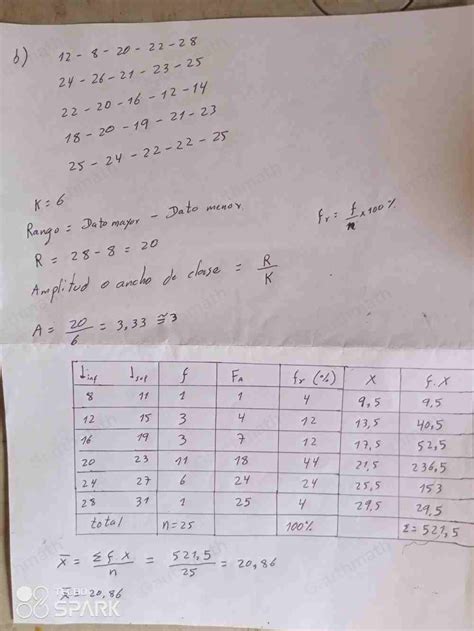 b) 12 - 8 - 20 - 22 - 28
24 - 26 - 21 - 23 - 25
22 - 20 - 16 - 12 - 14
18 - 20 - 19 - 21 - 23
25 - 24 - 22 - 22 - 25
K = 6
Rango = Dato mayor - Dato menor
fr = f/n x 100%
R = 28 - 8 = 20
Amplitud o ancho de clase = R/K
A = 20/6 = 3,33 ≅ 3
Linf Lsup f FA fr (%) X f.X
8 11 1 1 4 9,5 9,5
12 15 3 4 12 13,5 40,5
16 19 3 7 12 17,5 52,5
20 23 11 18 44 21,5 236,5
24 27 6 24 24 25,5 153
28 31 1 25 4 29,5 29,5
total n = 25 100% Σ = 521,5
X̄ = Σ f.X / n = 521,5 / 25 = 20,86
X̄ = 20,86
SPARK
Gauthmath